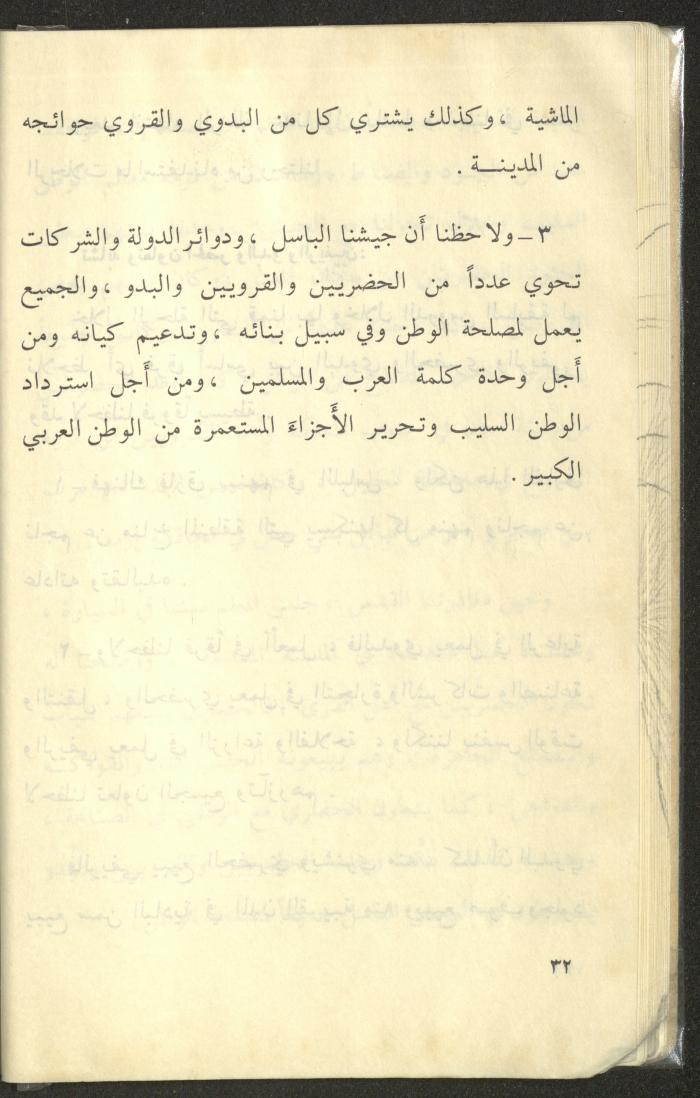 الماشية ، وكذلك يشتري كل من البدوي والقروي حوائجه
من المدينـــة .
٣ ـ ولاحظنا أَن جيشنا الباسل ، ودوائر الدولة والشركات
تحوي عدداً من الحضريين والقرويين والبدو ، والجميع
يعمل لمصلحة الوطن وفي سبيل بنائه ، وتدعيم كيانه ومن
أَجل وحدة كلمة العرب والمسلمين ، ومن أَجل استرداد
الوطن السليب وتحرير الأَجزاءَ المستعمرة من الوطن العربي
الكبير .
٣٢